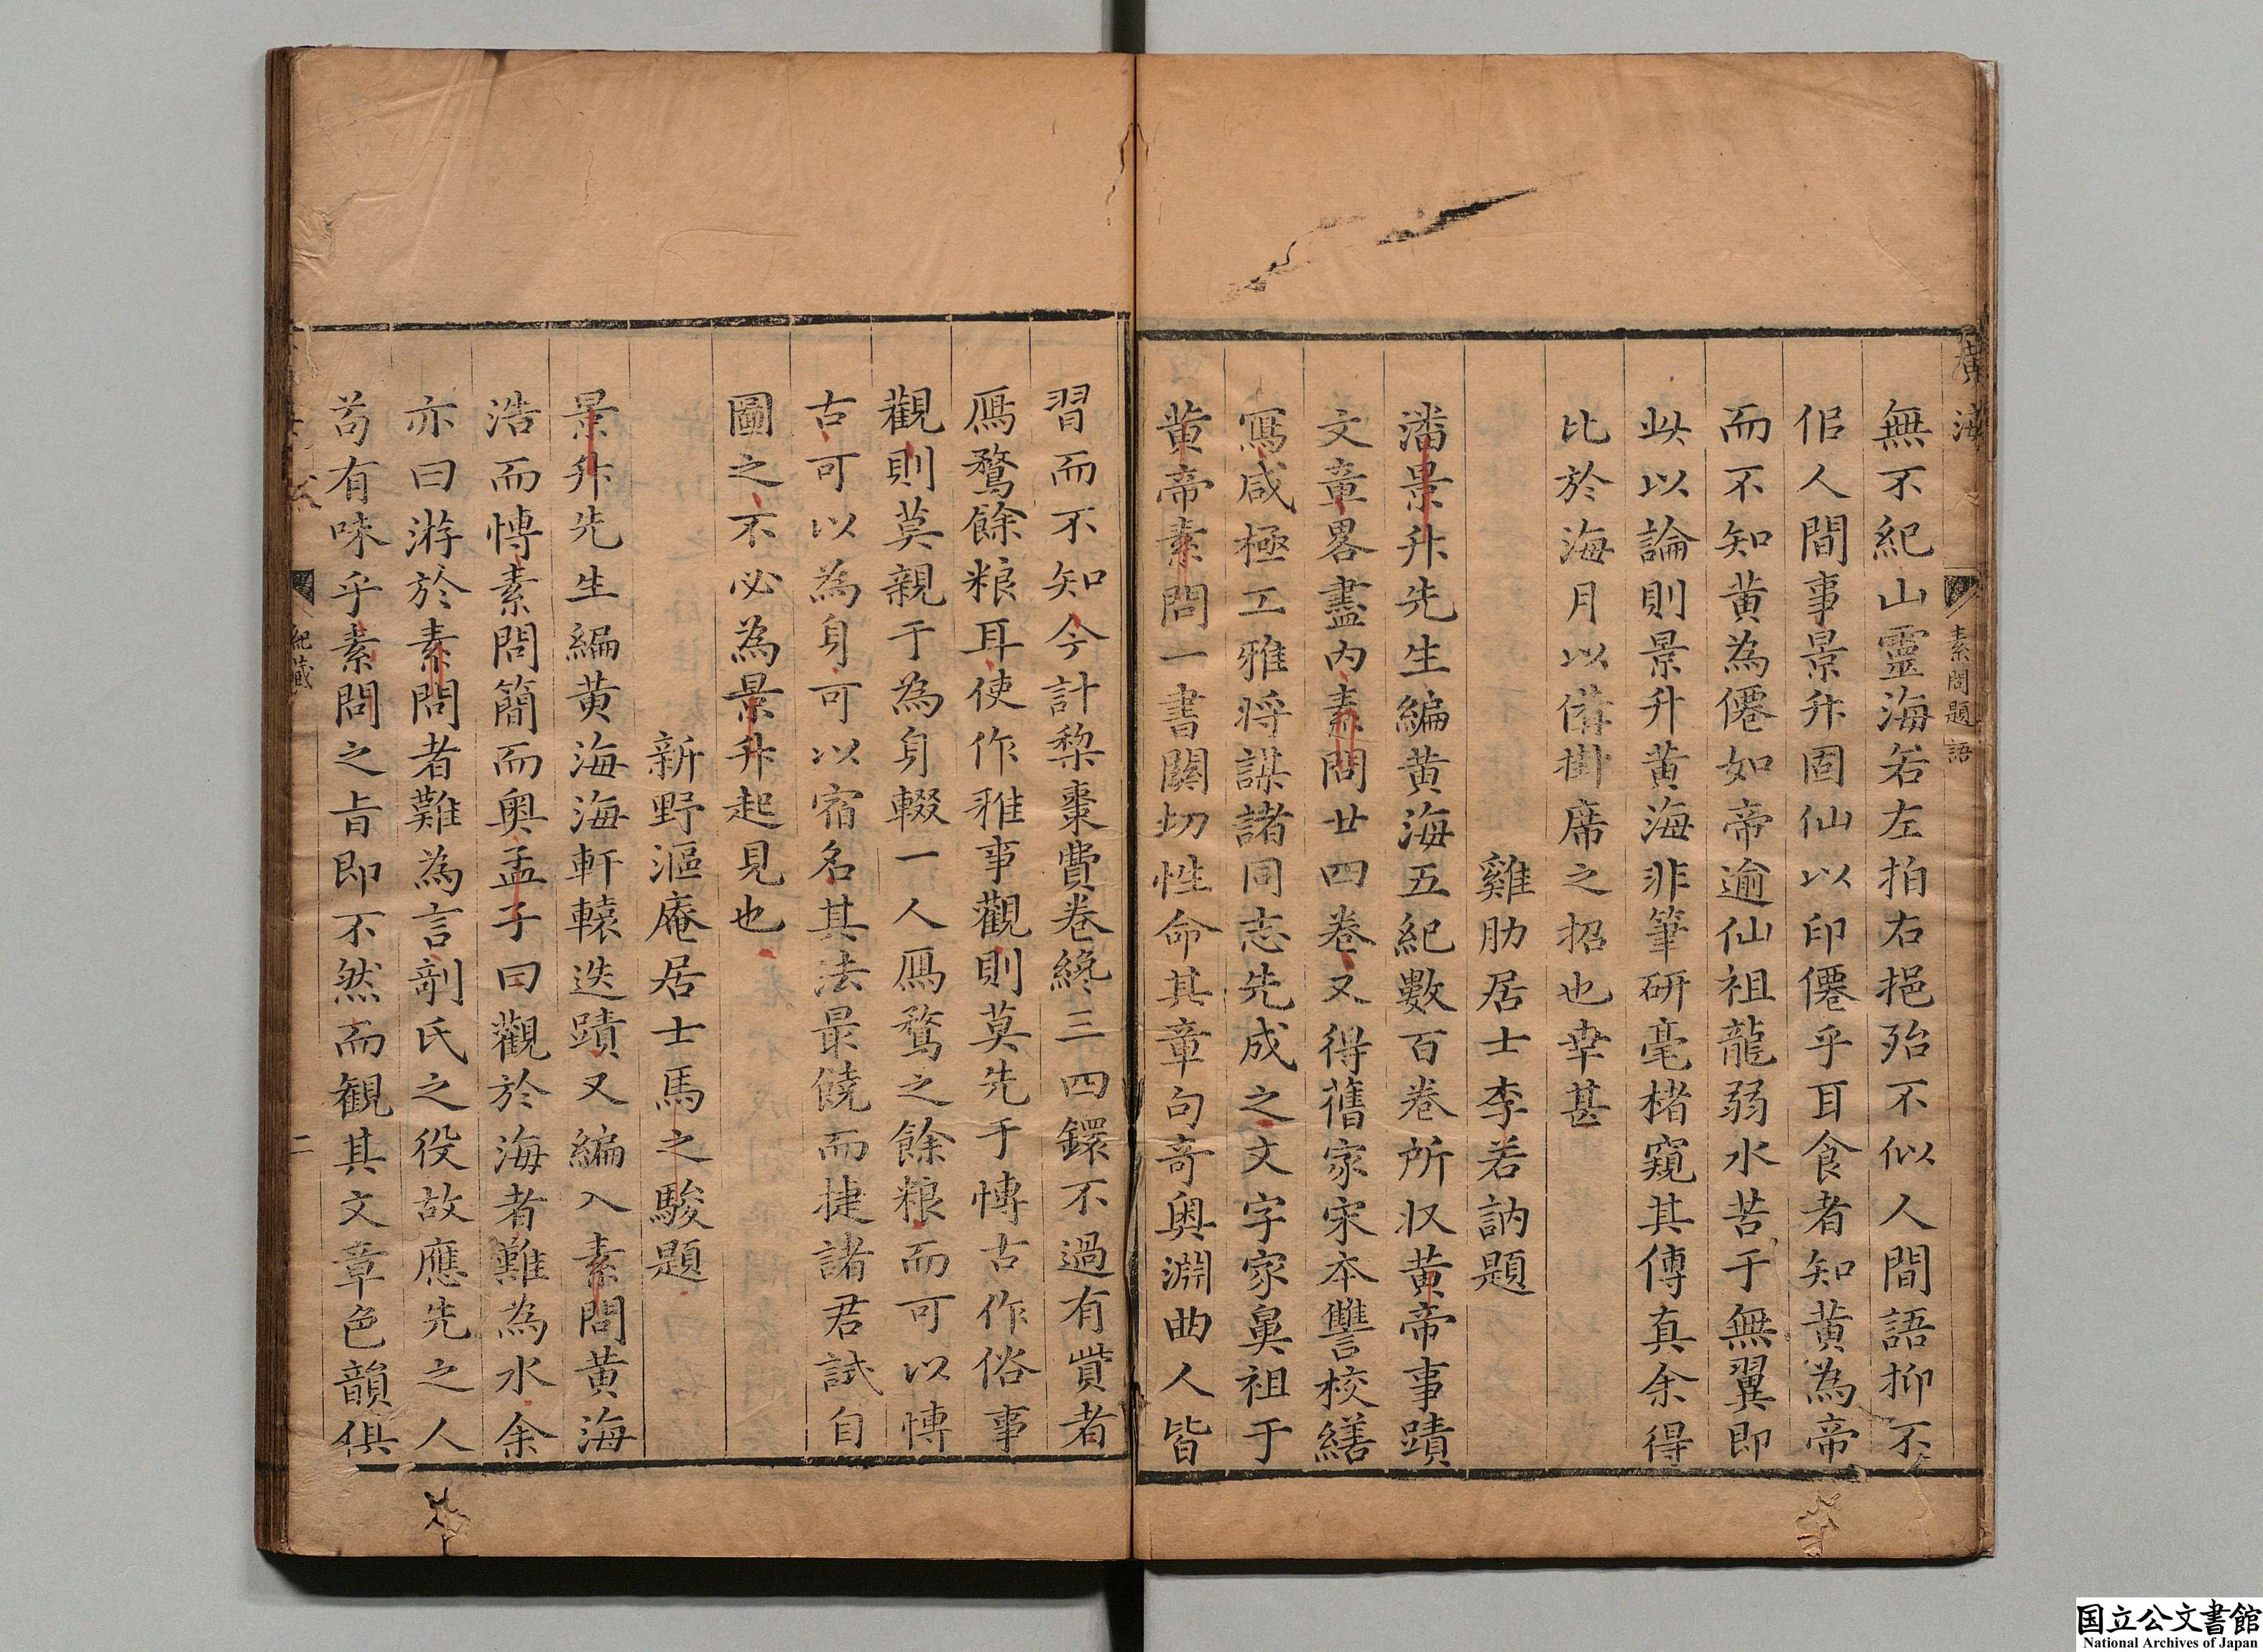 黃海
素問題語
無不紀山靈海若左拍右挹殆不似人間語抑不
佀人間事景升固仙以印僊乎耳食者知黃為帝
而不知黃為僊如帝逾仙祖龍弱水苦于無翼即
此以論則景升黃海非筆研毫楮窺其傳真余得
比於海月以備掛席之招也幸甚
雞肋居士李若訥題
潘景升先生編黃海五紀數百卷所収黃帝事蹟
文章畧盡內素問廿四卷又得舊家宋本讐校繕
寫咸極工雅將謀諸同志先成之文字家鼻祖于
黃帝素問一書關切性命其章句奇奧淵曲人皆
習而不知今計棃棗費卷終三四鐶不過有貲者
鴈鶩餘粮耳使作雅事觀則莫先于慱古作俗事
觀則莫親于為身輟一人鴈鶩之餘粮而可以慱
古可以為身可以宿名其法最饒而捷諸君試自
圖之不必為景升起見也
新野漚庵居士馬之駿題
景升先生編黃海海軒轅迭蹟又編入素問黃海
浩而慱素問簡而奧孟子曰觀於海者難為水余
亦曰游於素問者難為言剞氏之役故應先之人
苟有味乎素問之旨即不然而觀其文章色韻俱
紀藏
二
国立公文書館
National Archives of Japan